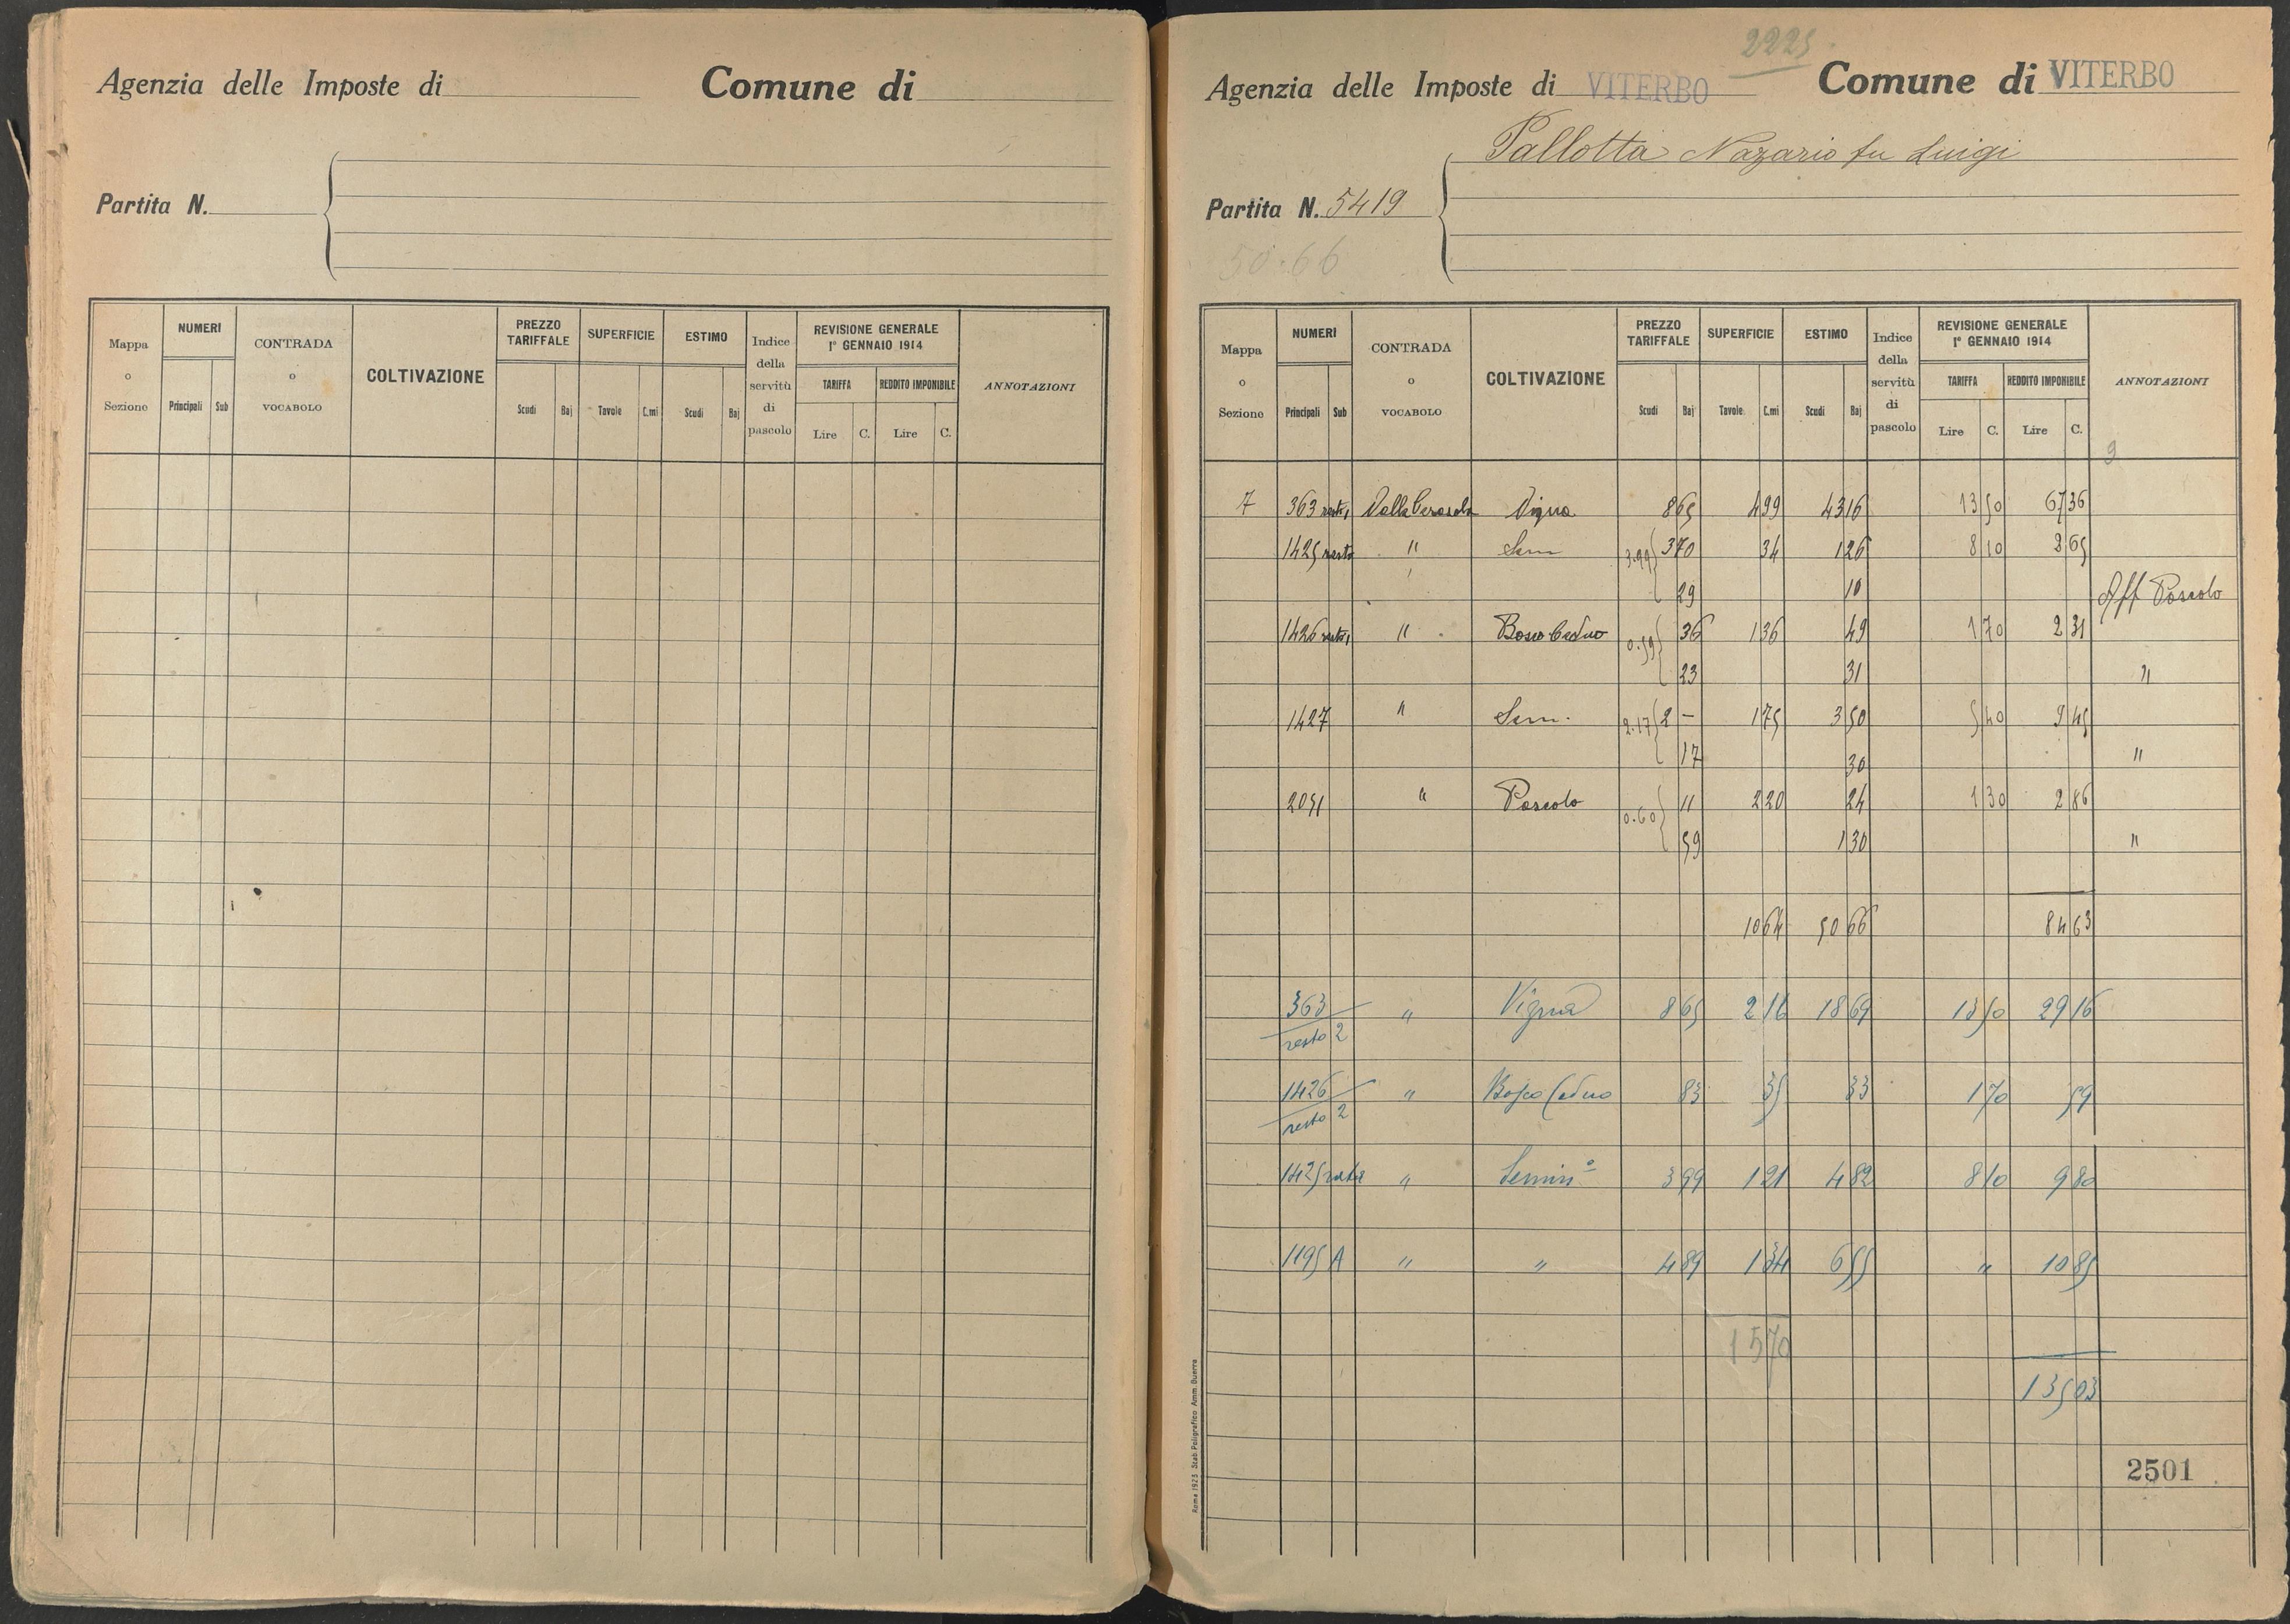 Agenzia delle Imposte di Comune di
Partita N.
Mappa o Sezione NUMERI Principali Sub CONTRADA o VOCABOLO COLTIVAZIONE PREZZO TARIFFALE Scudi Baj SUPERFICIE Tavole C.mi ESTIMO Scudi Baj Indice della servitù di pascolo REVISIONE GENERALE 1° GENNAIO 1914 TARIFFA Lire C. REDDITO IMPONIBILE Lire C. ANNOTAZIONI
2225
Agenzia delle Imposte di VITERBO Comune di VITERBO
Pallotta Nazario fu Luigi
Partita N. 5419
50.66
Mappa o Sezione NUMERI Principali Sub CONTRADA o VOCABOLO COLTIVAZIONE PREZZO TARIFFALE Scudi Baj SUPERFICIE Tavole C.mi ESTIMO Scudi Baj Indice della servitù di pascolo REVISIONE GENERALE 1° GENNAIO 1914 TARIFFA Lire C. REDDITO IMPONIBILE Lire C. ANNOTAZIONI
9
7 363 resto 1 Vigna 8 65 4 99 43 16 13 50 67 36
1425 resto " Sem 3.99 3 70 34 1 26 8 10 2 65
29 10 Aff Pascolo
1426 resto 1 " Bosco Ceduo 0.59 36 1 36 49 1 70 2 31
23 31 "
1427 " Sem. 2.17 2 – 1 75 3 50 5 40 9 45
17 30 "
2051 " Pascolo 0.60 11 2 20 24 1 30 2 86
59 1 30 "
10 64 50 66 84 63
363 resto 2 " Vigna 8 65 2 16 18 69 13 50 29 16
1426 resto 2 " Bosco Ceduo 83 35 33 1 70 59
1425 resto " Semin° 3 99 1 21 4 82 8 10 9 80
1195 A " " 4 89 1 34 6 55 " 10 85
15 70
135 03
2501
Roma 1923 Stab. Poligrafico Amm. Guerra